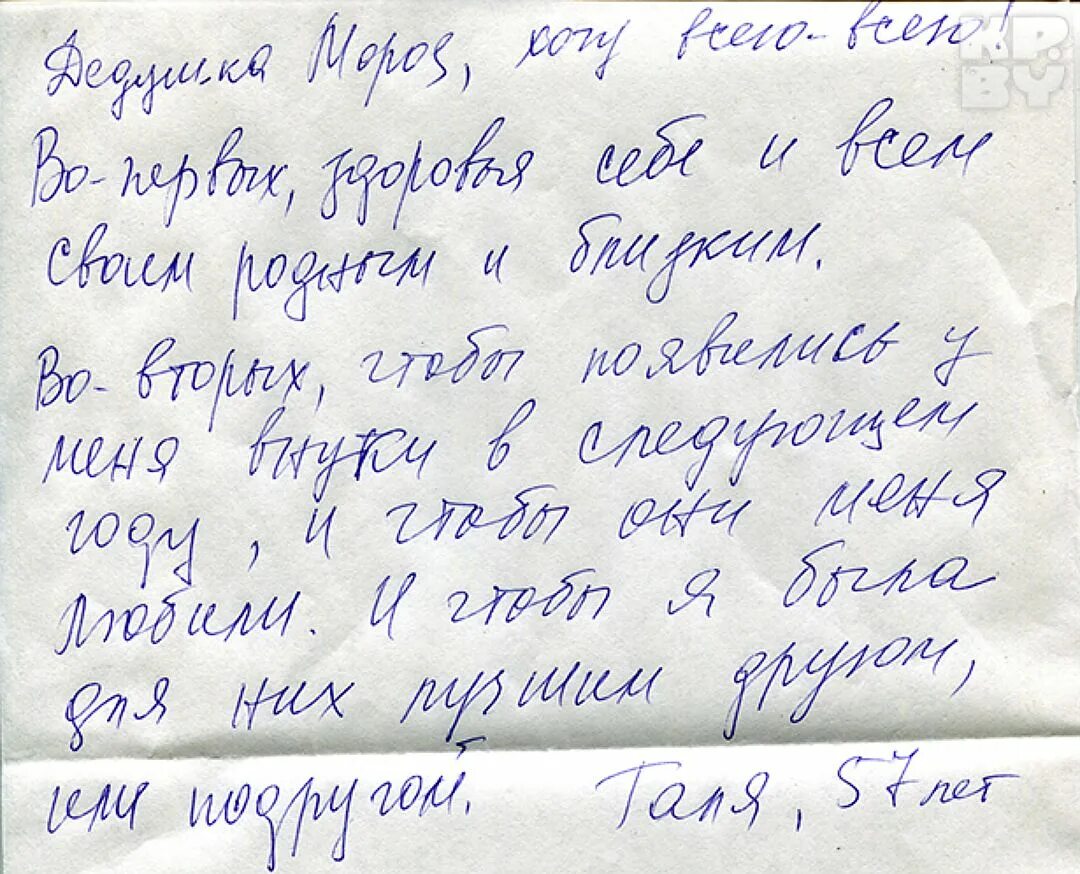 Дедушка Мороз, хочу всего-всего!
KP.
BY
Во-первых, здоровья себе и всем
своим родным и близким.
Во-вторых, чтобы появились у
меня внутки в следующем
году, и чтобы они меня
любили. И чтобы я была
для них лучшим другом,
или подругой. Галя, 57 лет